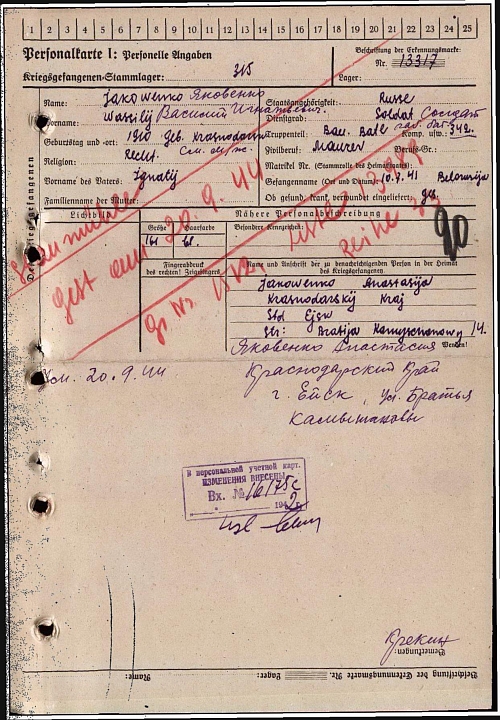 1 2 3 4 5 6 7 8 9 10 11 12 13 14 15 16 17 18 19 20 21 22 23 24 25
Personalkarte I: Personelle Angaben
Kriegsgefangenen-Stammlager: 315
Beschriftung der Erkennungsmarke:
Nr. 13317
Lager:
Des Kriegsgefangenen
Name: Jakowenko Яковенко
Vorname: Wassilij Василий Игнатьевич
Geburtstag und -ort: 1910 Geb. Krasnodarsk
Religion: Recht.
Vorname des Vaters: Ignatij
Familienname der Mutter:
Staatsangehörigkeit: Russe
Dienstgrad: Soldat Солдат
Truppenteil: Bau. Batl. Komp. usw.: 342.
Zivilberuf: Maurer Berufs-Gr.:
Matrikel Nr. (Stammrolle des Heimatstaates):
Gefangennahme (Ort und Datum): 10.7.41 Belorussija
Ob gesund, krank, verwundet eingeliefert: ges.
Lichtbild
Nähere Personalbeschreibung
Größe Haarfarbe Besondere Kennzeichen:
161 bl.
gest am 20.9.44
Gr. Nr.
Reihe
Fingerabdruck
des rechten! Zeigefingers
Name und Anschrift der zu benachrichtigenden Person in der Heimat
des Kriegsgefangenen
Jakowenko Anastasija
Krasnodarskij Kraj
Std Ejsk
Str: Bratija Kamyschanowy 14.
Яковенко Анастасия
Краснодарский Край
г. Ейск, ул. Братья
Камышановы
Ум. 20.9.44
В персональной учетной карт.
ИЗМЕНЕНИЯ ВНЕСЕНЫ
Вх. №
194
Крекин
Bemerkungen:
Beschriftung der Erkennungsmarke Nr. Lager: